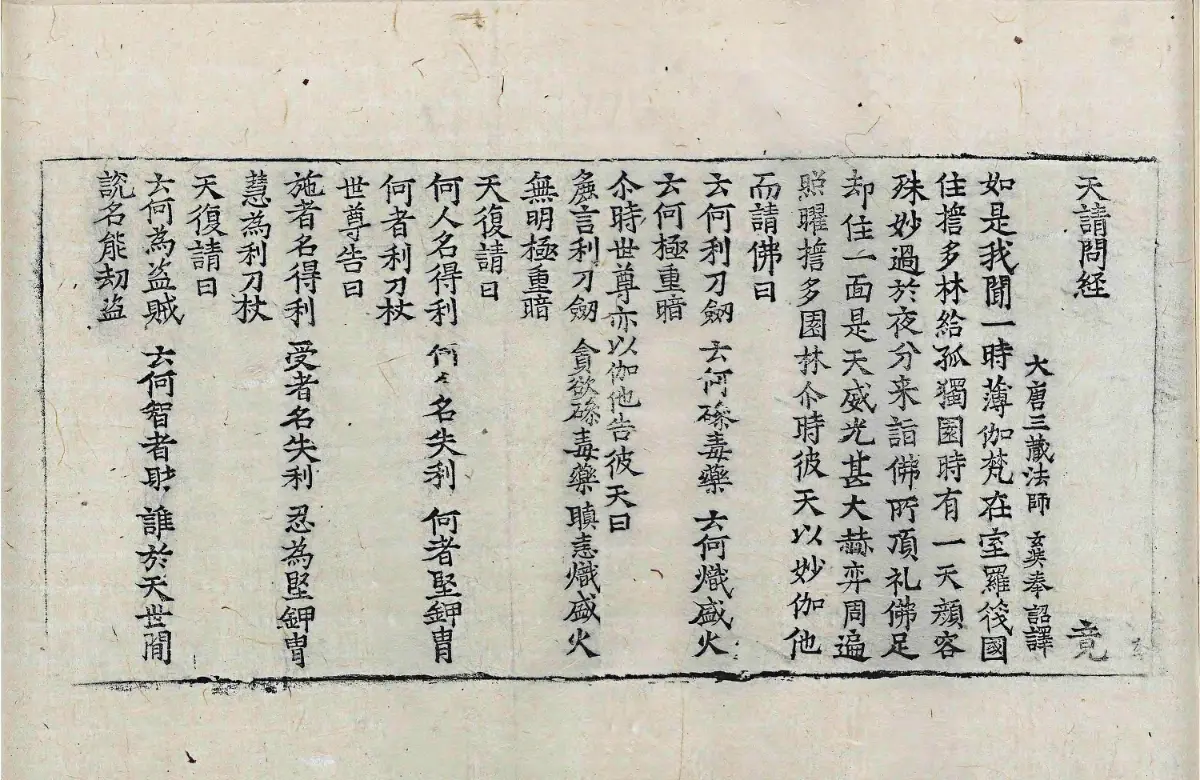 天請問経 竟
大唐三藏法師 玄奘奉 詔譯
如是我聞一時薄伽梵在室羅筏國
住擔多林給孤獨園時有一天顏容
殊妙過於夜分来詣佛所頂礼佛足
却住一面是天威光甚大赫弈周遍
照曜擔多園林尒時彼天以妙伽他
而請佛曰
云何利刀劒 云何磣毒藥 云何熾盛火
云何極重暗
尒時世尊亦以伽他告彼天曰
麁言利刀劒 貪欲磣毒藥 瞋恚熾盛火
無明極重暗
天復請曰
何人名得利 何 名失利 何者堅鉀冑
何者利刀杖
世尊告曰
施者名得利 受者名失利 忍為堅鉀冑
慧為利刀杖
天復請曰
云何為盗賊 云何智者財 誰於天世間
說名能劫盗